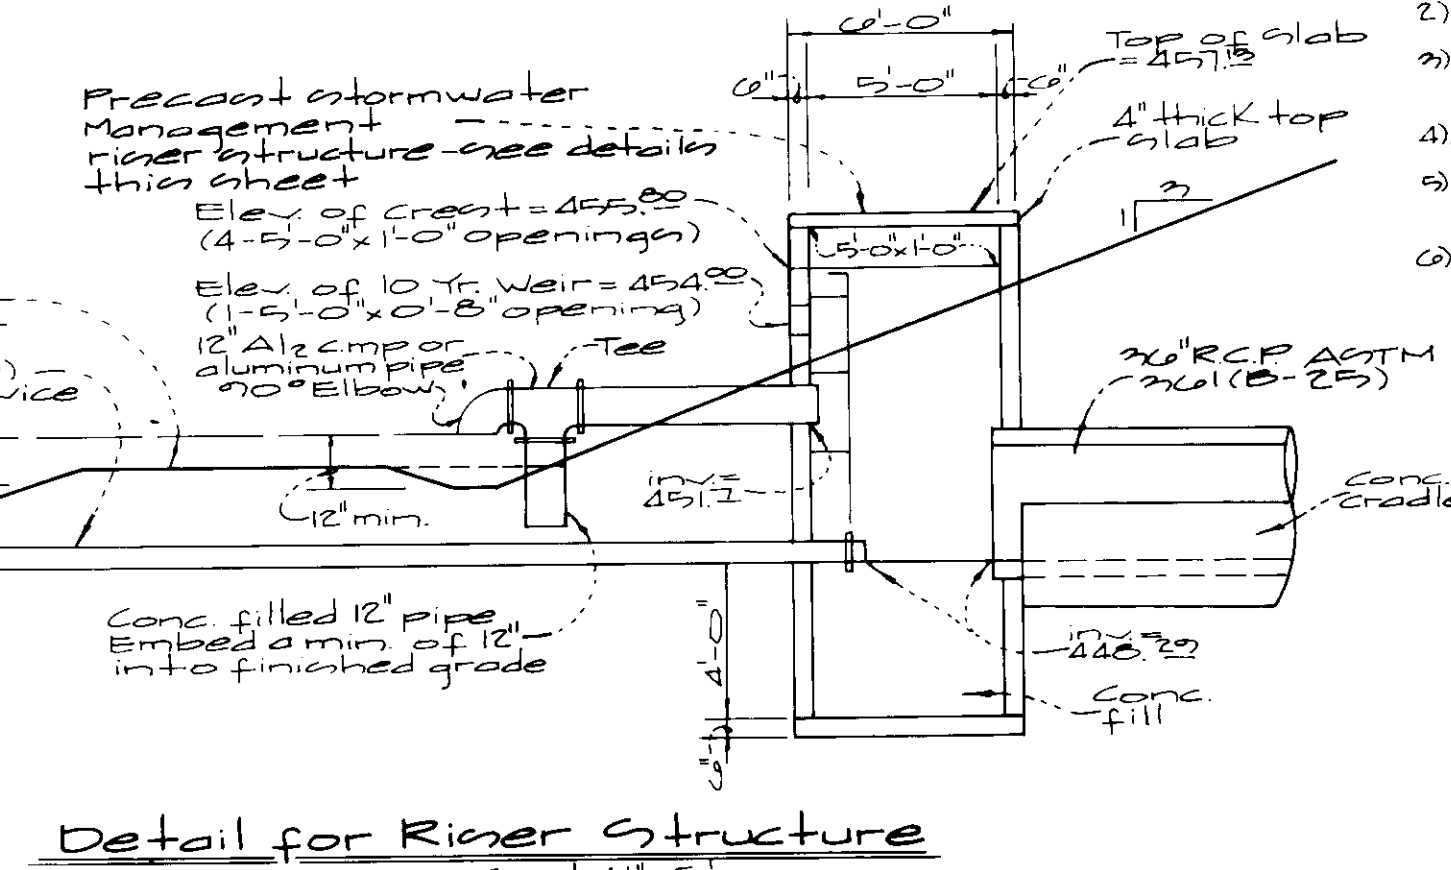 6'-0"
6"
5'-0"
6"
Top of Slab
= 457.13
4" thick top
slab
Precast stormwater
Management
riser structure-see details
this sheet
Elev. of Crest = 455.80
(4-5'-0"x1'-0" openings)
5'-0"x1'-0"
Elev. of 10 Yr. Weir = 454.00
(1-5'-0"x0'-8" opening)
12" Al2 c.m.p or
aluminum pipe
90° Elbow
Tee
3
1
2)
3)
4)
5)
6)
36" R.C.P. ASTM
361 (B-25)
Conc.
cradle
inv. =
451.7
12" min.
Conc. filled 12" pipe
Embed a min. of 12"
into finished grade
4'-0"
6"
inv. =
448.29
Conc.
fill
Detail for Riser Structure